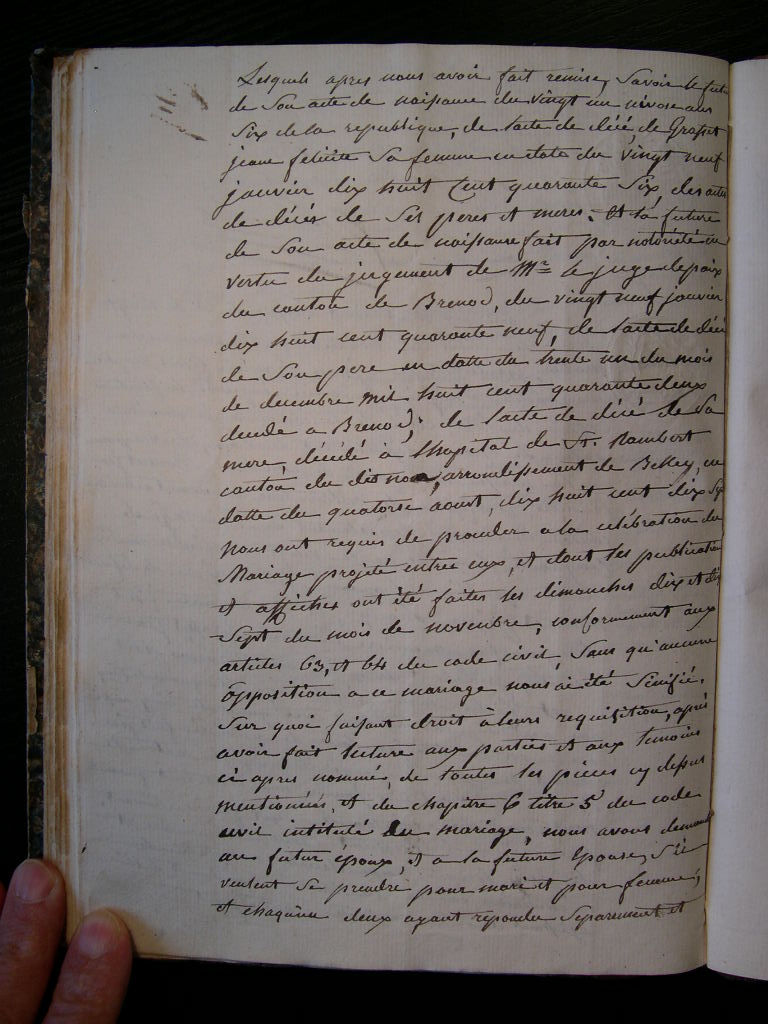 Lesquels apres nous avoir fait remise, Savoir le futur
de Son acte de naissance du vingt un nivose an
Six de la republique, de l'acte de décé, de Grosset
jeane felicité Sa femme en date du vingt neuf
janvier dix huit Cent quarante Six, des actes
de décés de Ses peres et meres. Et la future
de Son acte de naissance fait par notoriété en
vertu du jugement de Mr le juge de paix
du canton de Brenod, du vingt neuf janvier
dix huit cent quarante neuf, de l'acte de décé
de Son pere en datte du trente un du mois
de decembre mil huit cent quarante deux
decedé a Brenod, de l'acte de décé de Sa
mere, décédé à l'hopital de St. Rambert
canton du dit nom, arrondissement de Belley, en
datte du quatorse aoust, dix huit cent dix Sept
nous ont requis de proceder a la celébration du
Mariage projeté entree eux, et dont les publications
et affiches ont été faites les dimanches dix et dix
Sept du mois de novembre, conformement aux
articles 63, et 64 du code civil, Sans qu'aucune
opposition a ce mariage nous ai été Sinifié.
Sur quoi faisant droit à leurs requisition, après
avoir fait lecture aux parties et aux temoins
ci apres nommé, de toutes les pieces cy dessus
mentionnées, et du chapitre 6 titre 5 du code
civil intitulé Du mariage, nous avons demandé
au futur époux, et a la future Epouse, S'il
veulent Se prendre pour mari et pour femme;
et chaqu'un deux ayant repondu Separement et